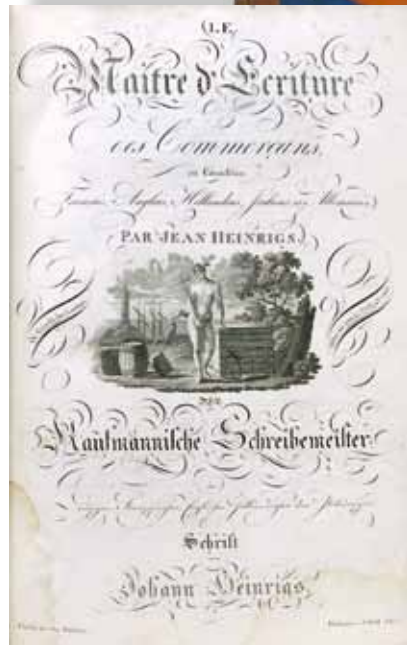 LE
Maitre d'Ecriture
des Commerçans,
en Caractères
Français, Anglais, Hollandais, Italiens et Allemands
PAR JEAN HEINRIGS.
Der
Kaufmännische Schreibemeister
Schrift
Johann Heinrigs